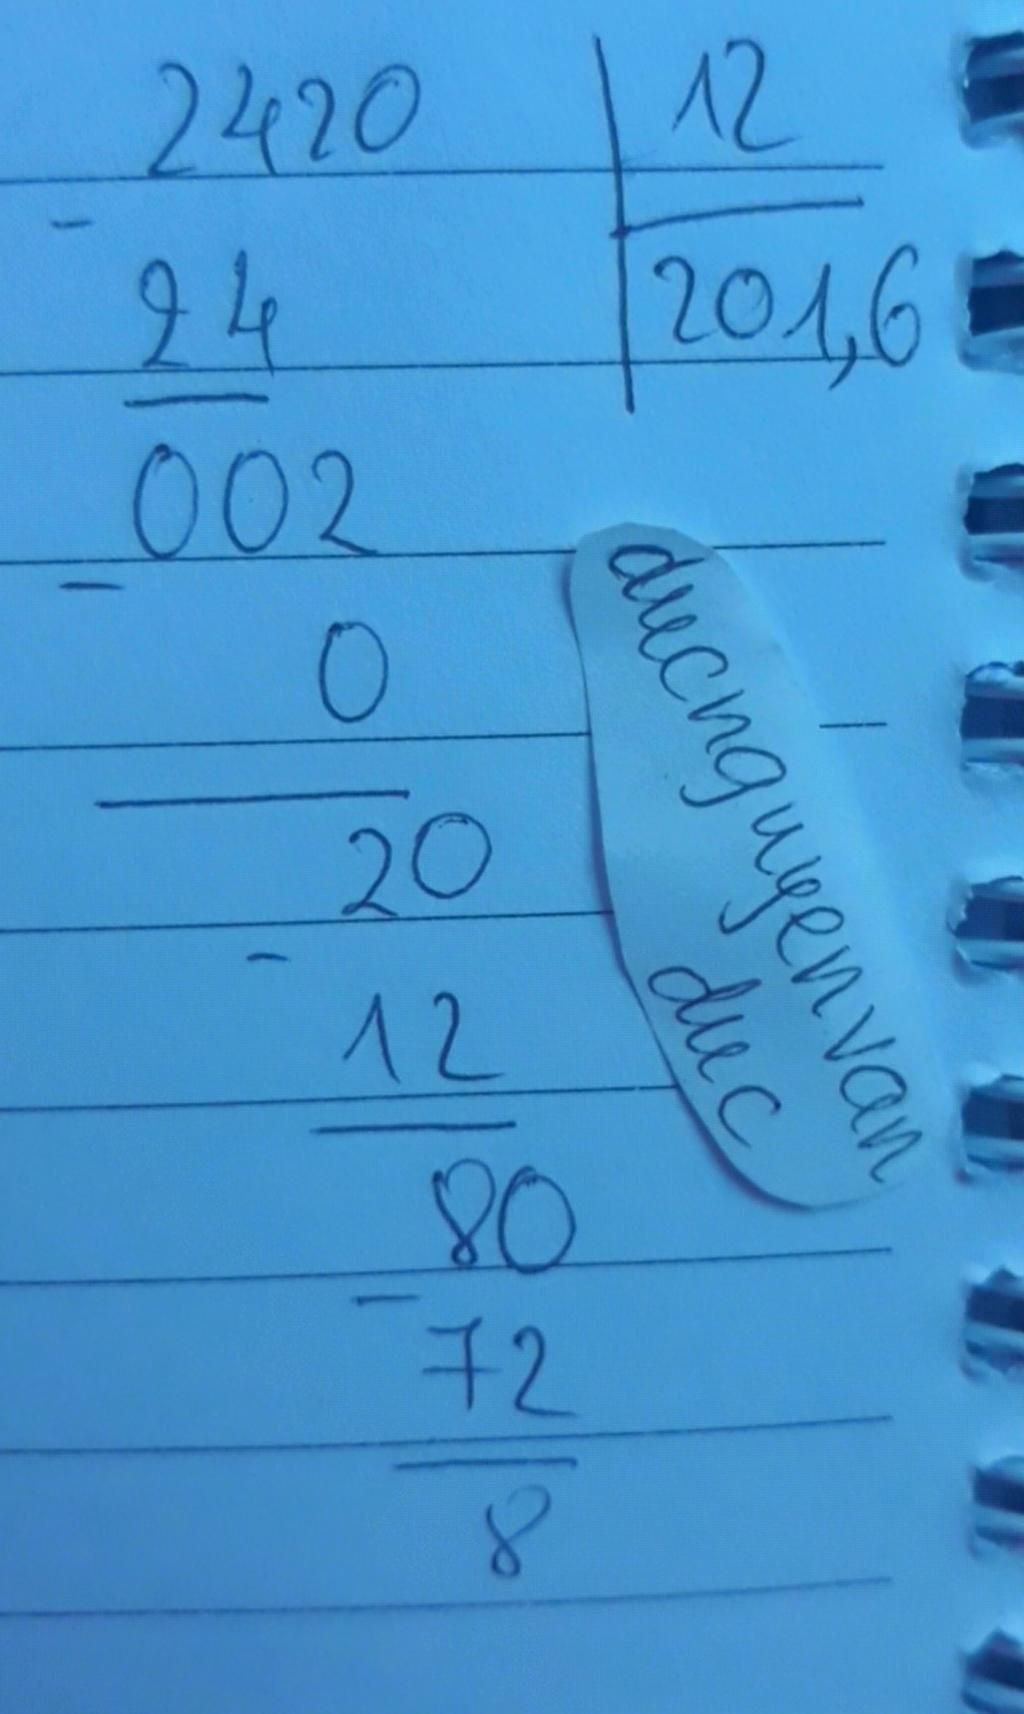 2420 12
-
24 201,6
002
-
0
20
-
12
80
-
72
8
ducnguyenvan
duc